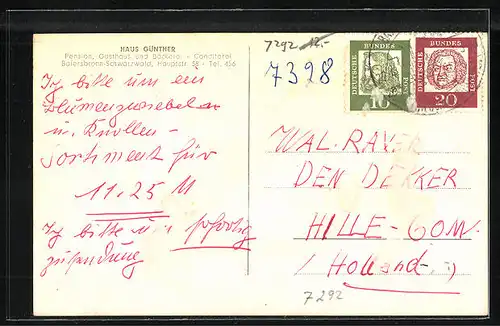 HAUS GÜNTHER
Pension, Gasthaus und Bäckerei - Conditorei
Baiersbronn-Schwarzwald, Hauptstr. 58 - Tel. 456
7292 12.-
7398
DEUTSCHE BUNDESPOST
10
DEUTSCHE BUNDESPOST
20
Ich bitte um ein
Blumenzwiebel
u. Knollen-
Sortiment für
11.25 M
Ich bitte um sofortig
zusendung
WAL. RAVER
DEN DEKKER
HILLE-GOM.
/ Holland.-)
7292